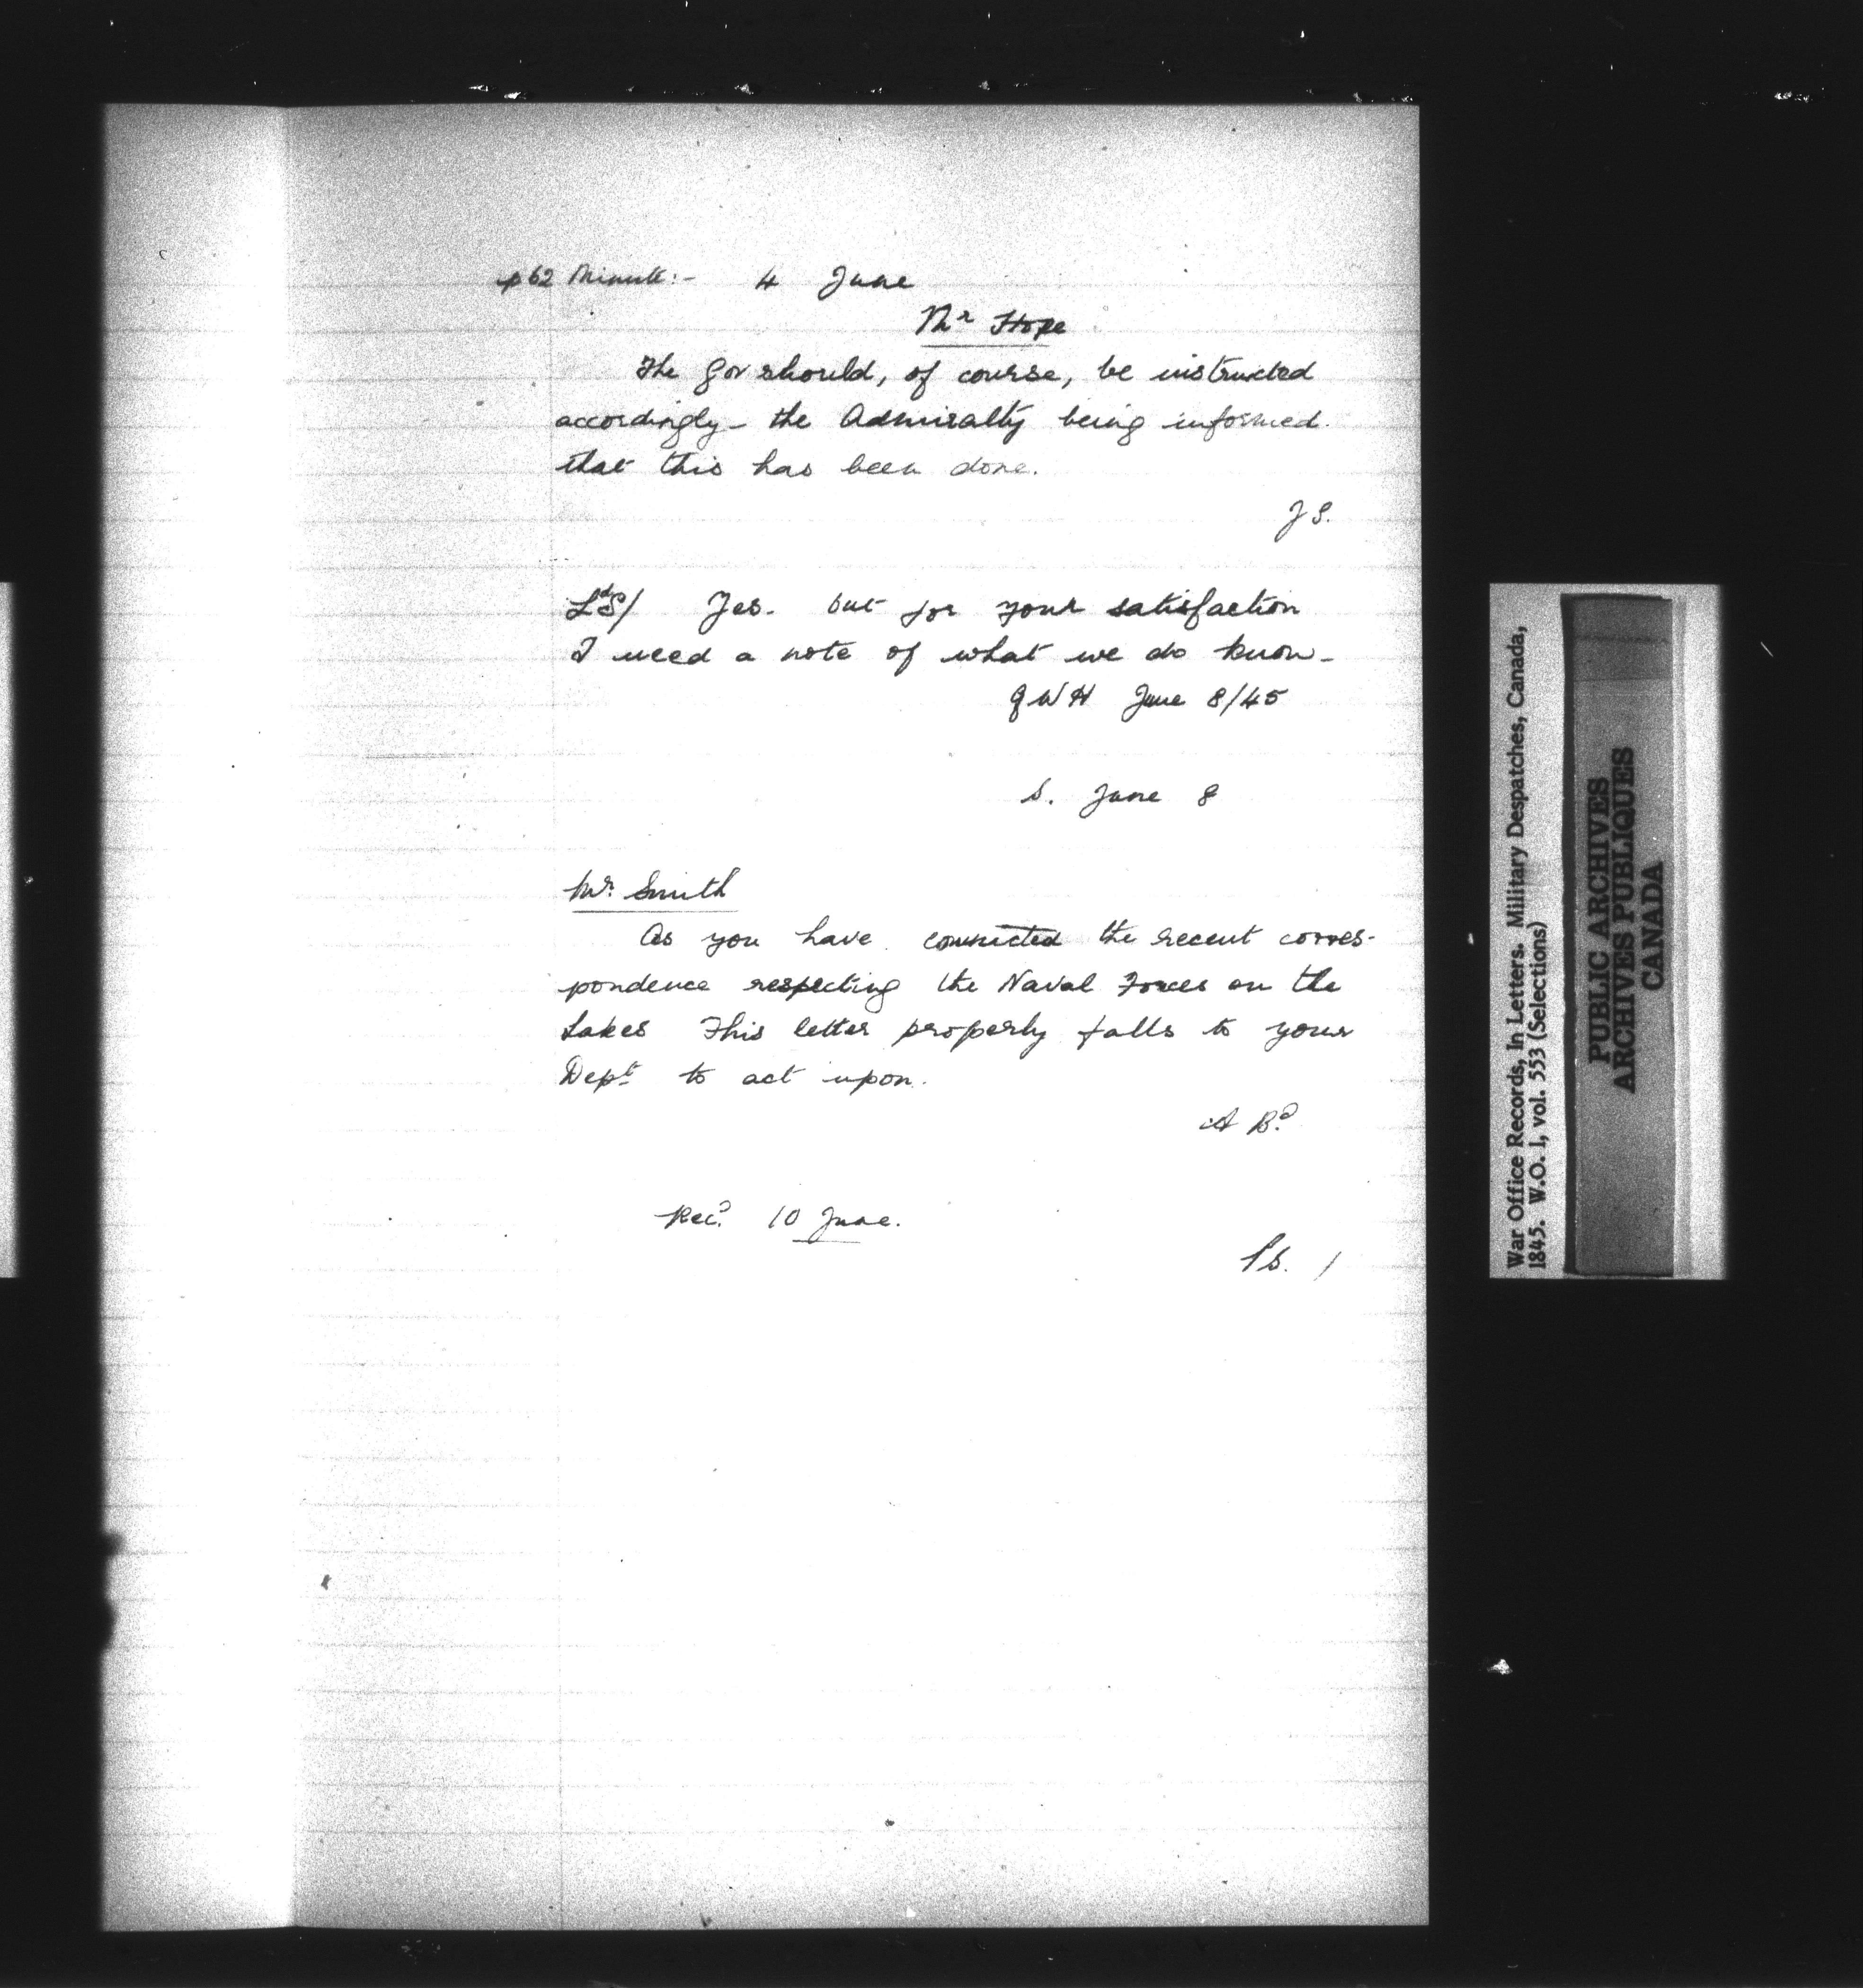 p62 Minute:- 4 June
Mr Hope
The Gov should, of course, be instructed
accordingly - the Admiralty being informed
that this has been done.
J S.
Ld S/ Yes. but for your satisfaction
I need a note of what we do know -
G W H June 8/45
S. June 8
Mr. Smith
As you have connected the recent corres-
pondence respecting the Naval Forces on the
Lakes This letter properly falls to your
Dept to act upon.
A Bd
Recd. 10 June.
PS. /
War Office Records, In Letters. Military Despatches, Canada,
1845. W.O. 1, vol. 553 (Selections)
PUBLIC ARCHIVES
ARCHIVES PUBLIQUES
CANADA